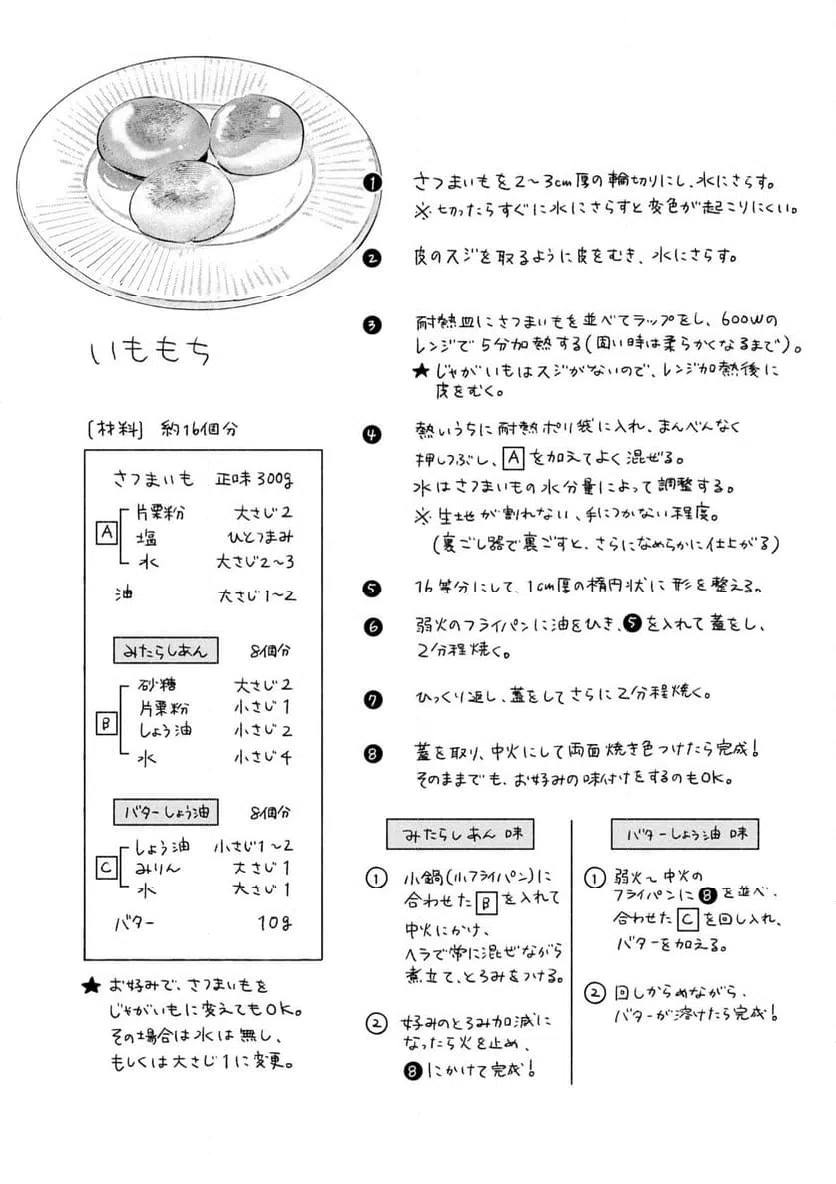 いももち
[材料] 約16個分
さつまいも 正味300g
A
片栗粉 大さじ2
塩 ひとつまみ
水 大さじ2~3
油 大さじ1~2
みたらしあん 8個分
B
砂糖 大さじ2
片栗粉 小さじ1
しょう油 小さじ2
水 小さじ4
バターしょう油 8個分
C
しょう油 小さじ1~2
みりん 大さじ1
水 大さじ1
バター 10g
★ お好みで、さつまいもを
じゃがいもに変えてもOK。
その場合は水は無し、
もしくは大さじ1に変更。
❶ さつまいもを2~3cm厚の輪切りにし、水にさらす。
※切ったらすぐに水にさらすと変色が起こりにくい。
❷ 皮のスジを取るように皮をむき、水にさらす。
❸ 耐熱皿にさつまいもを並べてラップをし、600Wの
レンジで5分加熱する(固い時は柔らかくなるまで)。
★ じゃがいもはスジがないので、レンジ加熱後に
皮をむく。
❹ 熱いうちに耐熱ポリ袋に入れ、まんべんなく
押しつぶし、Aを加えてよく混ぜる。
水はさつまいもの水分量によって調整する。
※生地が割れない、手につかない程度。
(裏ごし器で裏ごすと、さらになめらかに仕上がる)
❺ 16等分にして、1cm厚の楕円状に形を整える。
❻ 弱火のフライパンに油をひき、❺を入れて蓋をし、
2分程焼く。
❼ ひっくり返し、蓋をしてさらに2分程焼く。
❽ 蓋を取り、中火にして両面焼き色つけたら完成!
そのままでも、お好みの味付けをするのもOK。
みたらしあん 味
① 小鍋(小フライパン)に
合わせたBを入れて
中火にかけ、
ヘラで常に混ぜながら
煮立て、とろみをつける。
② 好みのとろみ加減に
なったら火を止め、
❽にかけて完成!
バターしょう油 味
① 弱火~中火の
フライパンに❽を並べ、
合わせたCを回し入れ、
バターを加える。
② 回しからめながら、
バターが溶けたら完成!